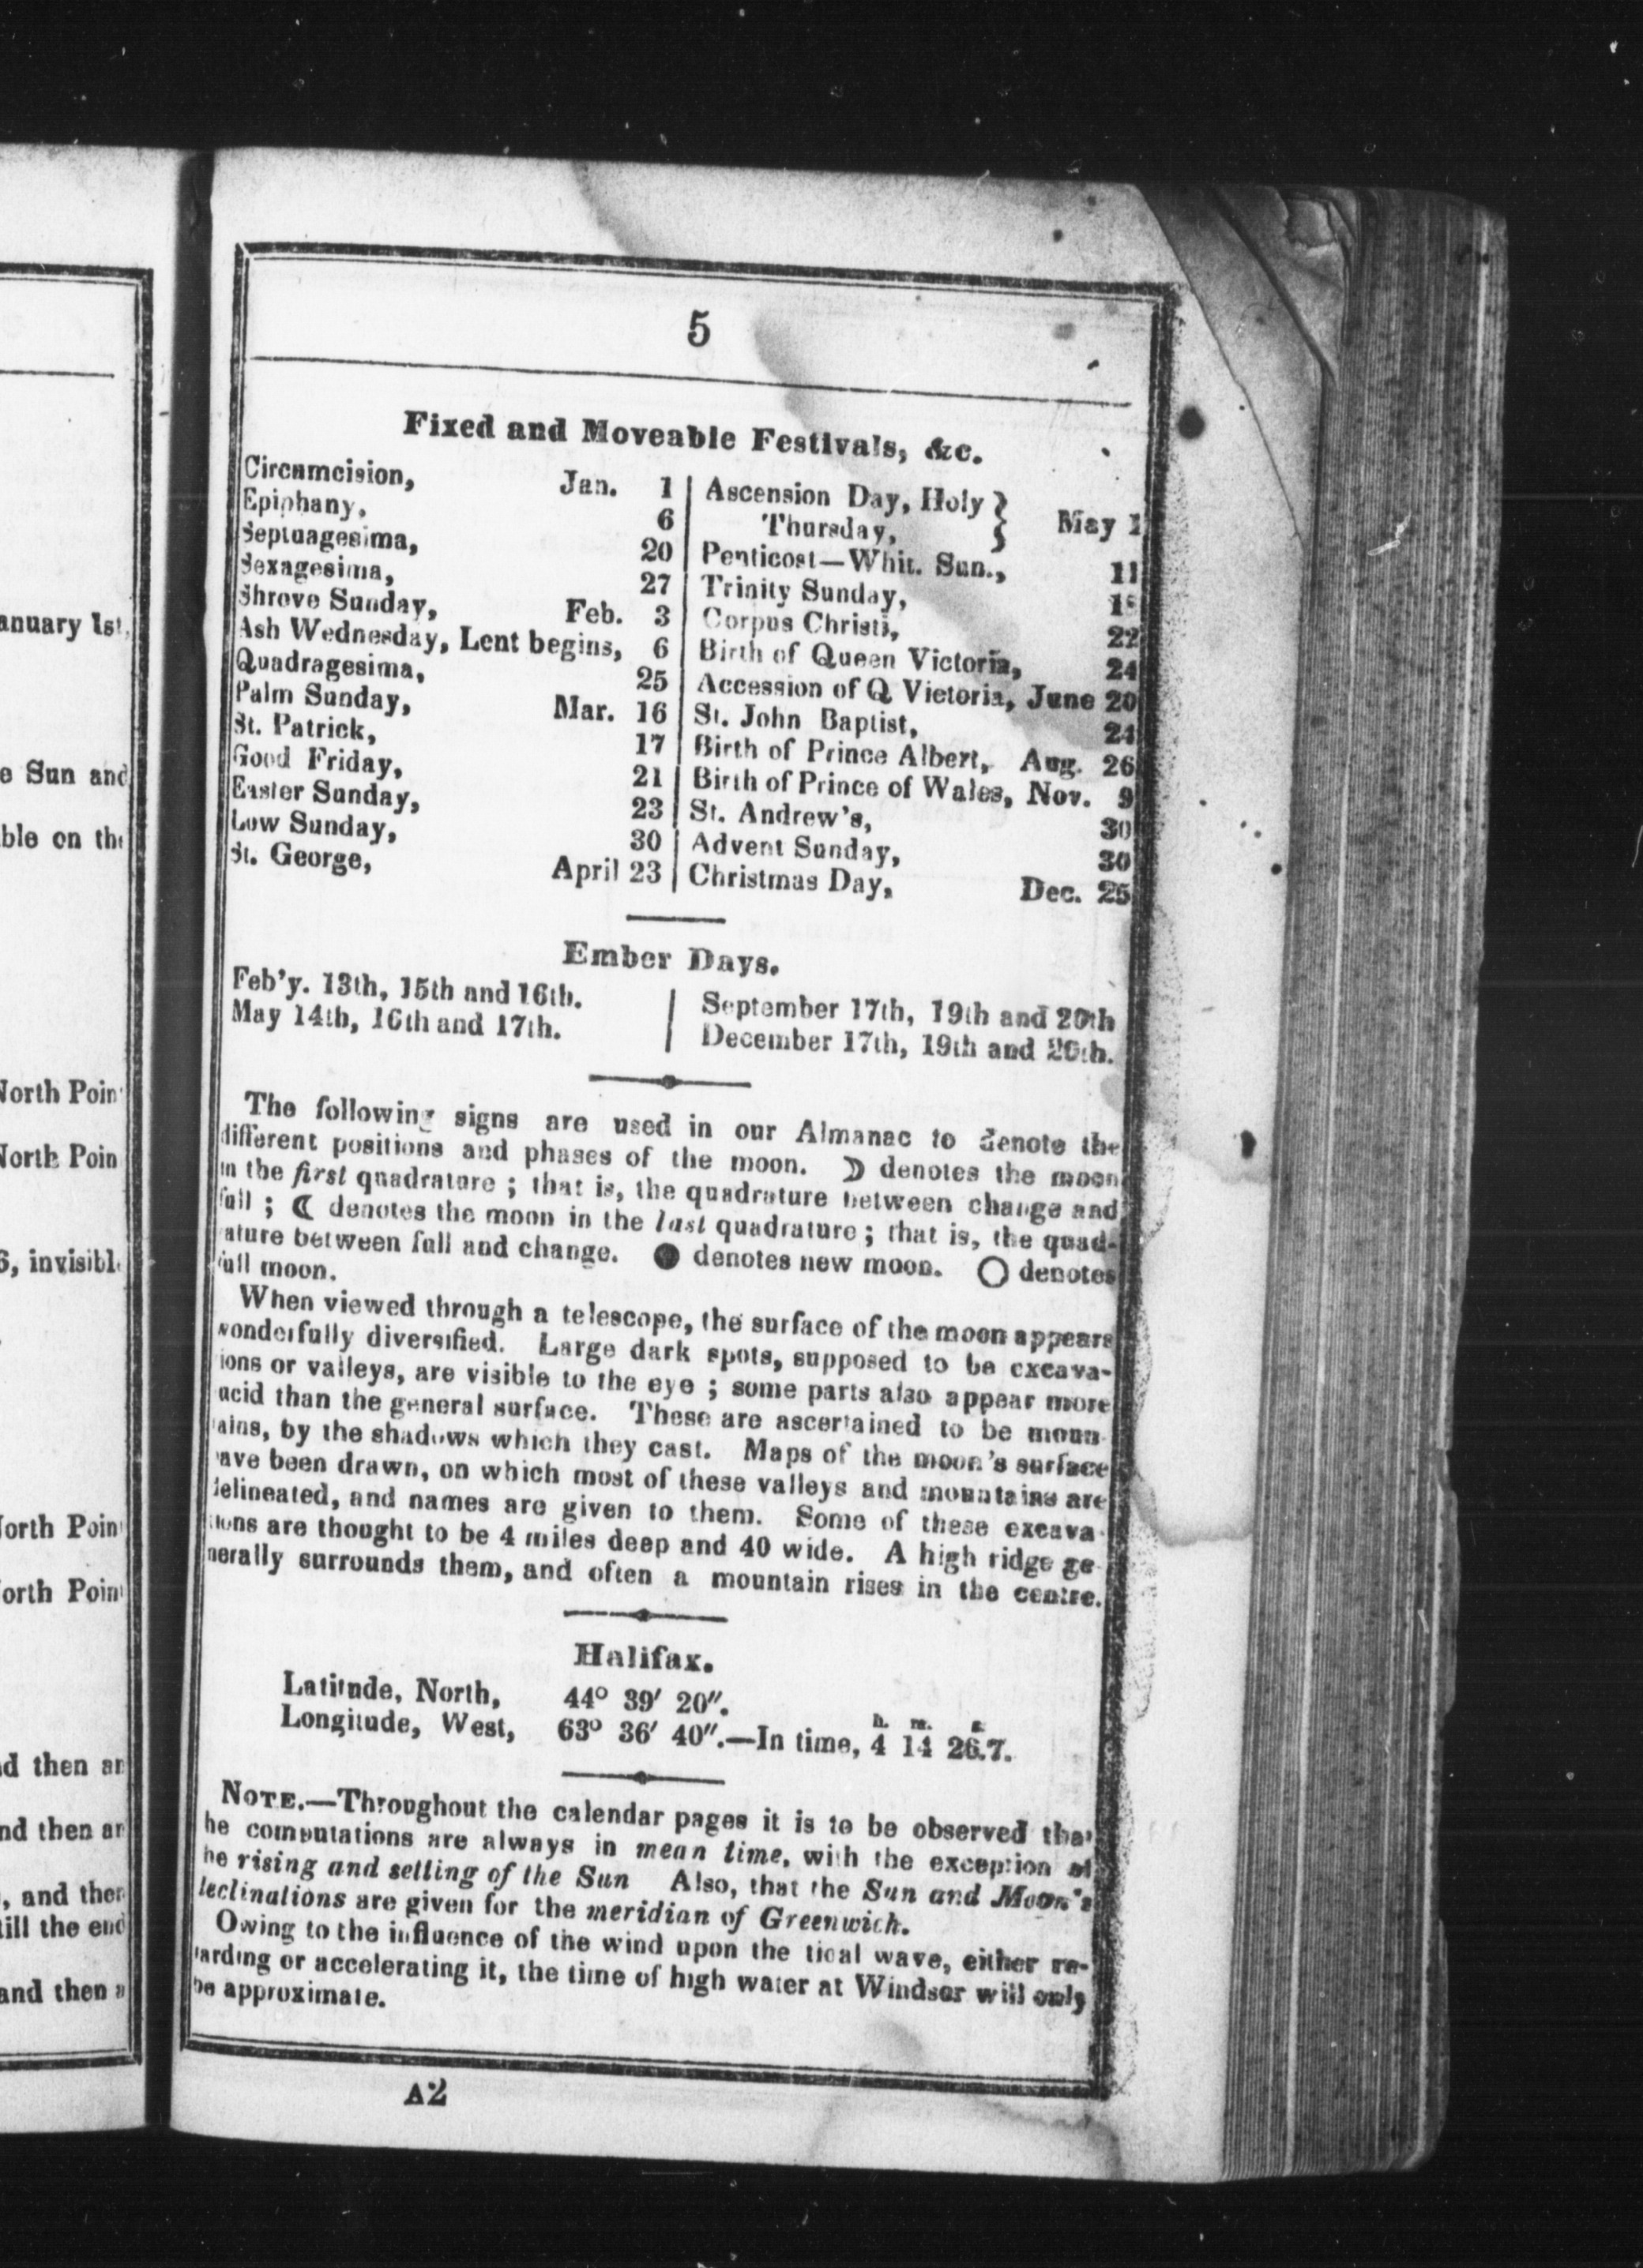 anuary 1st,
e Sun and
ble on the
North Poin
North Poin
6, invisibl
North Poin
orth Poin
d then an
nd then an
, and then
till the end
and then a
5
Fixed and Moveable Festivals, &c.
Circumcision, Jan. 1
Epiphany, 6
Septuagesima, 20
Sexagesima, 27
Shrove Sunday, Feb. 3
Ash Wednesday, Lent begins, 6
Quadragesima, 25
Palm Sunday, Mar. 16
St. Patrick, 17
Good Friday, 21
Easter Sunday, 23
Low Sunday, 30
St. George, April 23
Ascension Day, Holy }
Thursday, } May 1
Penticost—Whit. Sun., 11
Trinity Sunday,
Corpus Christi, 22
Birth of Queen Victoria, 24
Accession of Q Victoria, June 20
St. John Baptist, 24
Birth of Prince Albert, Aug. 26
Birth of Prince of Wales, Nov. 9
St. Andrew's, 30
Advent Sunday, 30
Christmas Day, Dec. 25
Ember Days.
Feb'y. 13th, 15th and 16th.
May 14th, 16th and 17th.
September 17th, 19th and 20th
December 17th, 19th and 20th.
The following signs are used in our Almanac to denote the
different positions and phases of the moon. ☽ denotes the moon
in the first quadrature ; that is, the quadrature between change and
full ; ☾ denotes the moon in the last quadrature ; that is, the quad-
ature between full and change. ● denotes new moon. ○ denotes
full moon.
When viewed through a telescope, the surface of the moon appears
wonderfully diversified. Large dark spots, supposed to be excava-
ions or valleys, are visible to the eye ; some parts also appear more
ucid than the general surface. These are ascertained to be moun
ains, by the shadows which they cast. Maps of the moon's surface
ave been drawn, on which most of these valleys and mountains are
delineated, and names are given to them. Some of these excava
tions are thought to be 4 miles deep and 40 wide. A high ridge ge
nerally surrounds them, and often a mountain rises in the centre.
Halifax.
Latitude, North, 44° 39′ 20″.
h. m. s.
Longitude, West, 63° 36′ 40″.—In time, 4 14 26.7.
NOTE.—Throughout the calendar pages it is to be observed that
he computations are always in mean time, with the exception of
he rising and setting of the Sun Also, that the Sun and Moon's
declinations are given for the meridian of Greenwich.
Owing to the influence of the wind upon the tidal wave, either re-
tarding or accelerating it, the time of high water at Windsor will only
be approximate.
A2